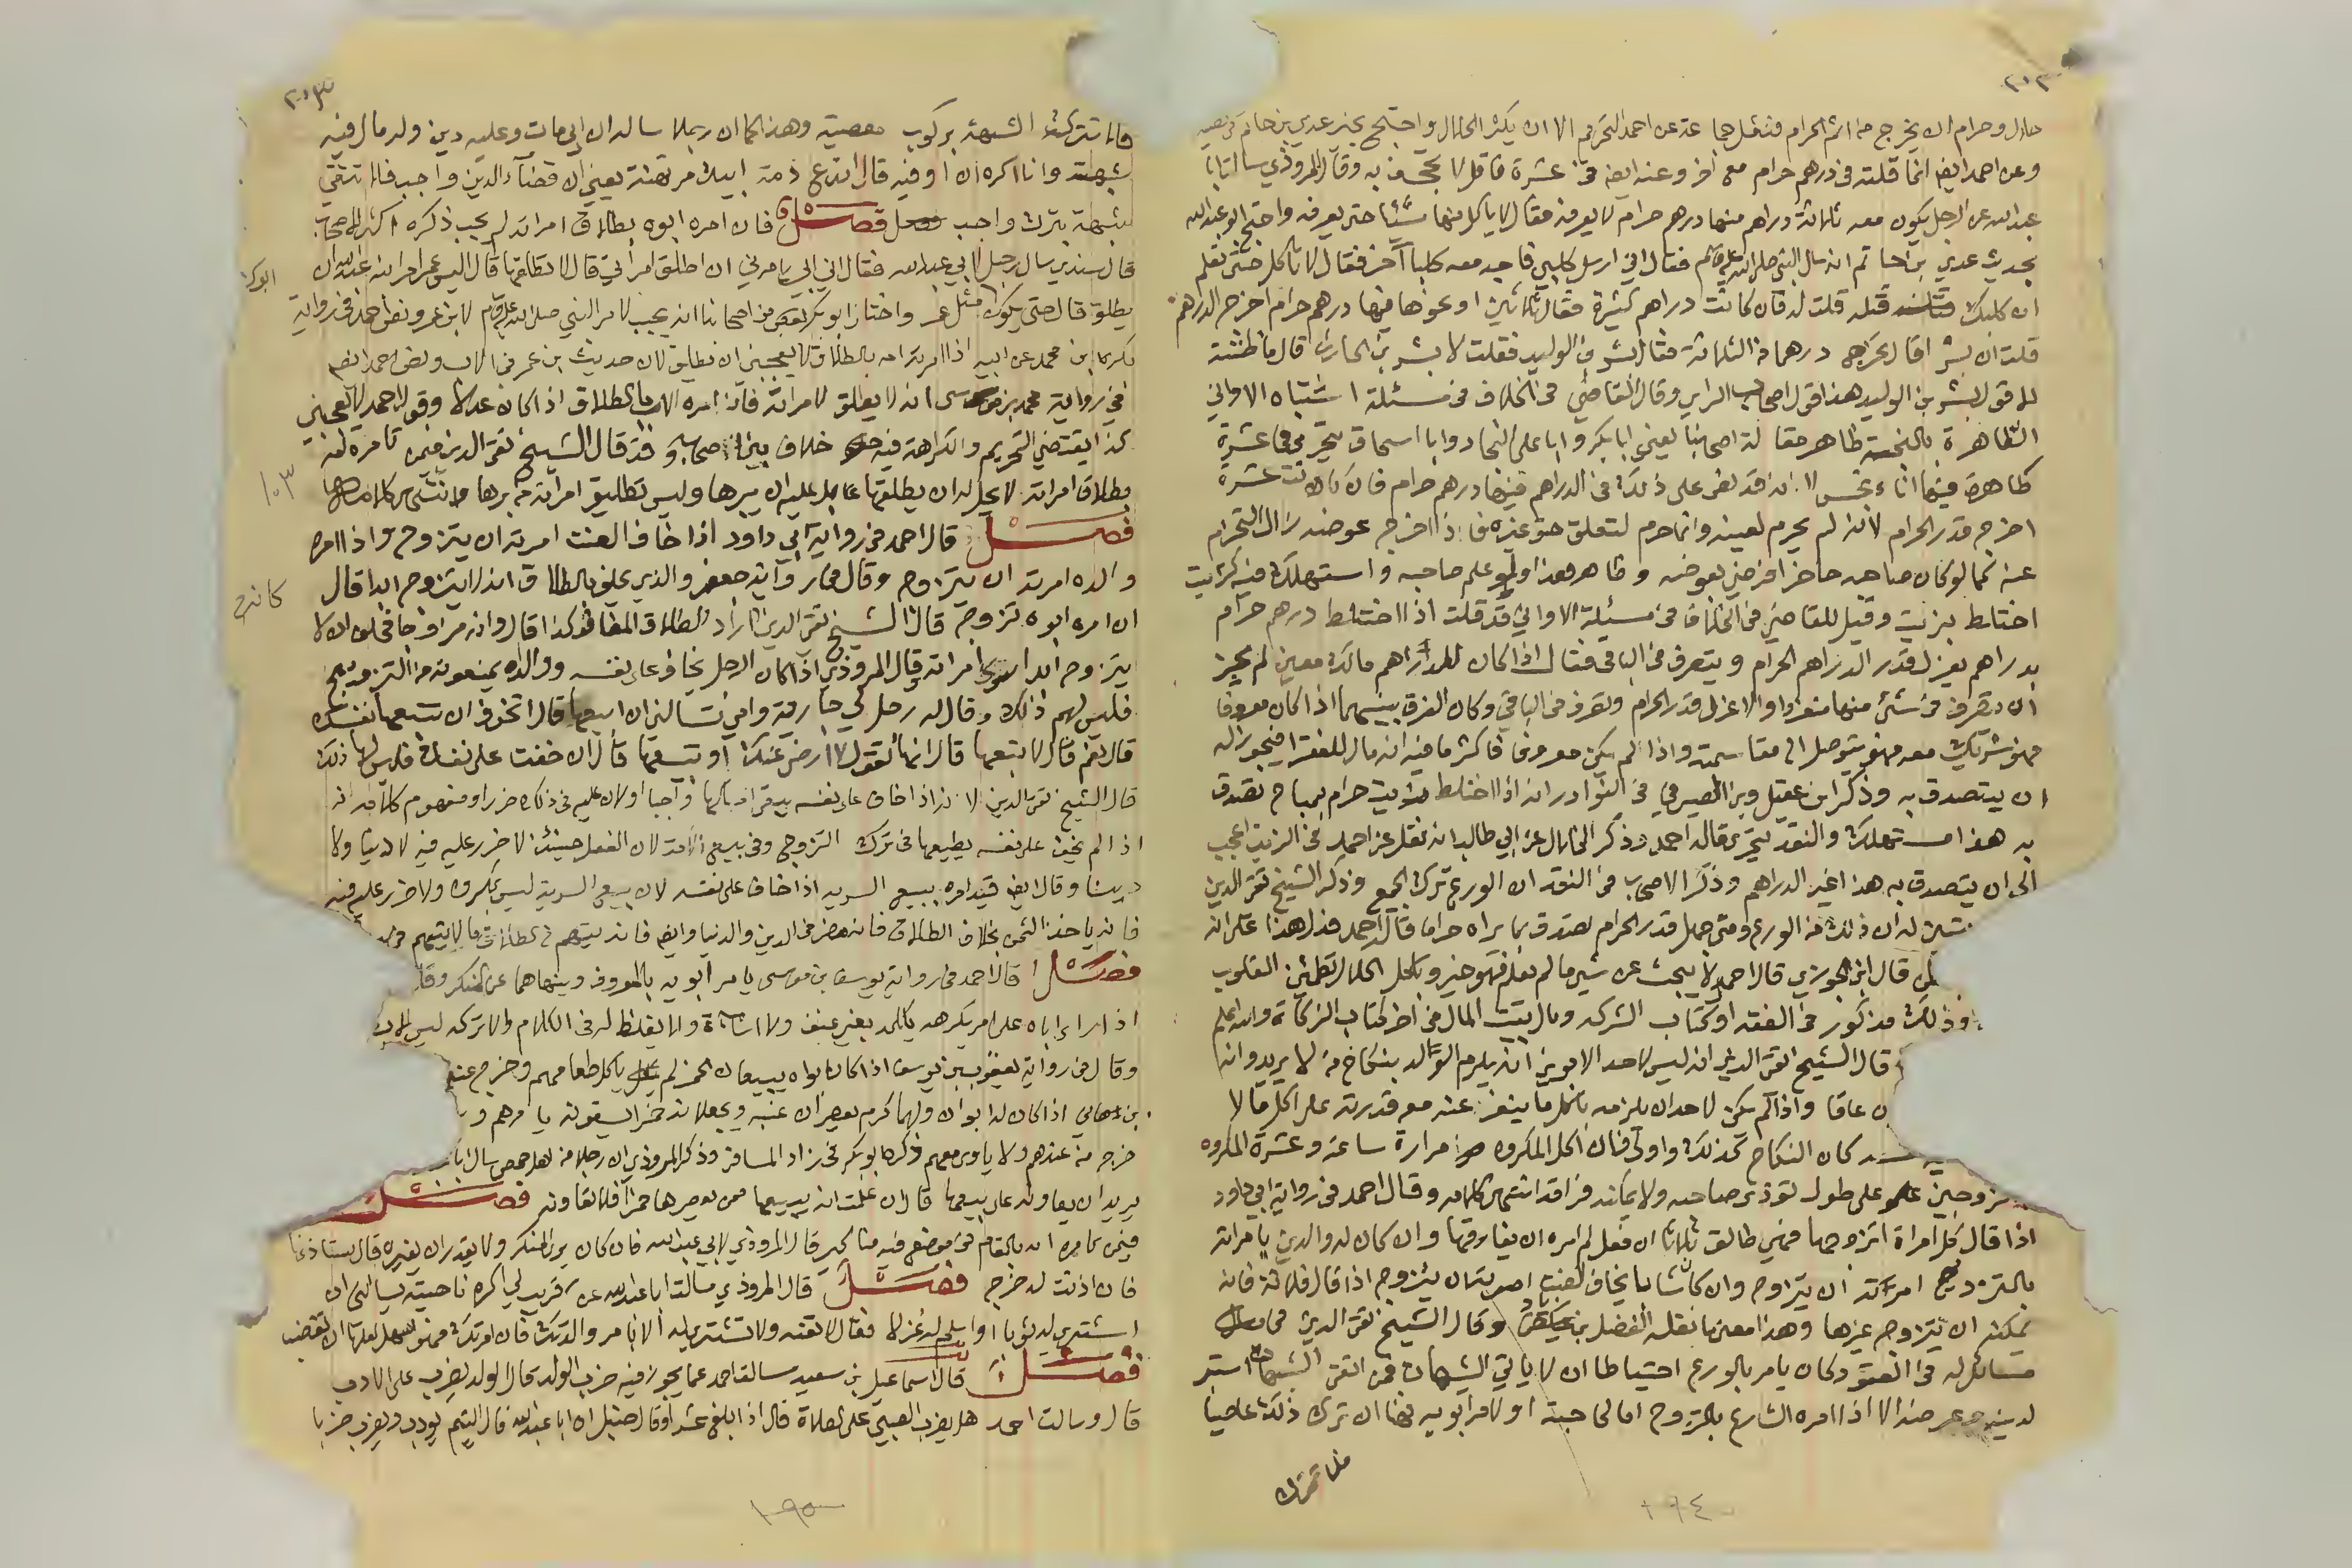 حلال وحرام ان يخرج منه اثم الحرام فنقل جماعة عن احمد التحريم الا ان يكثر الحلال واحتج بخبر عدي بن حاتم في الصيد
وعن احمد ايضا انما قلته في درهم حرام مع اخر وعنه ايضا في عشرة فاقل لا يجحف به وقال المروذي سالت ابا
عبد الله عن الرجل يكون معه ثلاثة دراهم منها درهم حرام لا يعرفه فقال لا ياكل منها شيئا حتى يعرفه واحتج ابو عبد الله
بحديث عدي بن حاتم انه سال النبي صلى الله عليه وسلم فقال اني ارسل كلبي فاجد معه كلبا آخر فقال لا تاكل حتى تعلم
ان كلبك قتله قلت له فان كانت دراهم كثيرة فقال ثلاثين او نحوها فيها درهم حرام اخرج الدرهم
قلت ان بشرا قال يخرج درهما من الثلاثة فقال بشر بن الوليد فقلت لا بشر بن الحارث قال ما ظننته
الا قول بشر بن الوليد هذا قول اصحاب الراي وقال القاضي في الخلاف في مسئلة اشتباه الاواني
الطاهرة بالنجسة ظاهر مقالة اصحابنا يعني ابا بكر وابا علي النجاد وابا اسحاق يتحرى في عشرة
طاهرة فيها اناء نجس لانه قد نص على ذلك في الدراهم فيها درهم حرام فان كانت عشرة
اخرج قدر الحرام لانه لم يحرم لعينه وانما حرم لتعلق حق غيره فاذا اخرج عوضه زال التحريم
عنه كما لو كان صاحبه حاضرا فرضي بعوضه وظاهر هذا ولو علم صاحبه واستهلك فيه كزيت
اختلط بزيت وقيل للقاضي في الخلاف في مسئلة الاواني قد قلت اذا اختلط درهم حرام
بدراهم يعزل قدر الدراهم الحرام ويتصرف في الباقي فقال اذا كان للدراهم مالك معين لم يجز
ان يتصرف في شئ منها منفردا والا عزل قدر الحرام وتصرف في الباقي وكان الفرق بينهما اذا كان معروفا
فهو شريك معه فهو يتوصل الى مقاسمته واذا لم يكن معروفا فاكثر ما فيه انه مال للفقرا فيجوز له
ان يتصدق به وذكر ابن عقيل وبرا الصيرفي في النوادر انه اذا اختلط زيت حرام بمباح تصدق
به هذا مستهلك والنقد يتحرى قاله احمد وذكر الخلال عن ابي طالب انه نقل عن احمد في الزيت اعجب
الى ان يتصدق به هذا غير الدراهم وذكر الاصحاب في النقد ان الورع ترك الجميع وذكر الشيخ تقي الدين
يتبين له ان ذلك من الورع ومتى جهل قدر الحرام تصدق بما يراه حراما قاله احمد فدل هذا على انه
قال ابن الجوزي قال احمد لا يبحث عن شي ما لم يعلم فهو خير وباكل الحلال تطمئن القلوب
وذلك مذكور في الفقه او كتاب الشركه ومال بيت المال في اخر كتاب الزكاة والله اعلم
قال الشيخ تقي الدين انه ليس لاحد الابوين ان يلزم الولد بنكاح من لا يريد وانه
ن عاقا واذا لم يكن لاحد ان يلزمه باكل ما ينفر عنه مع قدرته على اكل ما لا
كان النكاح كذلك واولى فان اكل المكروه مرارة ساعة وعشرة المكروه
زوجين على طول تؤذي صاحبه ولا يمكنه فراقه انتهى كلامه وقال احمد في رواية ابي داود
اذا قال كل امراة اتزوجها فهي طالق ثلاثا ان فعل لم امره ان يفارقها وان كان له والدين يامرانه
بالتزويج امرته ان يتزوج وان كان شابا يخاف العنت امرته ان يتزوج اذا قال فلانة فانه
يمكنه ان يتزوج غيرها وهذا معنى ما نقله الفضل بن زياد وقال الشيخ تقي الدين في
مسائل له في العتق وكان يامر بالورع احتياطا ان لا ياتي الشبهات فمن اتقى الشبهات استبر
لدينه وعرضه الا اذا امره الشارع بالتزوج اما لحاجته او لامر ابويه فهنا ان ترك ذلك عاصيا
فلا تترك
فلا تترك الشبهة بركوب معصية وهذا كما ان رجلا ساله ان ابي مات وعليه دين وله مال فيه
شبهة وانا اكره ان اوفيه قال اتدع ذمة ابيك مرتهنة يعني ان قضاء الدين واجب فلا تتقي
شبهة بترك واجب فصل فان امره ابوه بطلاق امراته لم يجب ذكره اكثر الاصحاب
قال سندي سال رجل لابي عبد الله فقال ان ابي يامرني ان اطلق امراتي قال لا تطلقها قال اليس عمر امر ابنه عبد الله ان
يطلق قال حتى يكون مثل عمر واختار ابو بكر بعض من اصحابنا انه يجب لامر النبي صلى الله عليه وسلم لابن عمر ونص احمد في رواية
بكر بن محمد عن ابيه اذا امرته امه بالطلاق لا يعجبني ان يطلق لان حديث ابن عمر في الاب ونص احمد ايضا
في رواية محمد بن موسى انه لا يطلق لامر امه فان امره الاب بالطلاق اذا كان عدلا وقول احمد لا يعجبني
كذا يقتضي التحريم والكراهة فيه خلاف بين اصحابه وقد قال الشيخ تقي الدين فيمن تامره امه
بطلاق امراته لا يحل له ان يطلقها بل عليه ان يبرها وليس تطليق امراته من برها انتهى كلامه
فصل قال احمد في رواية ابي داود اذا خاف العنت امرته ان يتزوج واذا امره
والده امرته ان يتزوج وقال في رواية جعفر والذي يحلف بالطلاق انه لا يتزوج ابدا قال
ان امره ابوه تزوج قال الشيخ تقي الدين كانه اراد الطلاق المضاف كذا قال وانه مزاوجا فحلف ان لا
يتزوج ابدا سوى امراته وقال المروذي اذا كان الرجل يخاف على نفسه ووالداه يمنعونه من التزويج
فليس لهم ذلك وقال له رجل لي جارية وامي تسالني ان ابيعها قال اتخوف ان تتبعها نفسك
قال نعم قال لا تبعها قال انها تقول لا ارضى عنك او تبيعها قال ان خفت على نفسك فليس لها ذلك
قال الشيخ تقي الدين لانه اذا خاف على نفسه يبقى امساكها واجبا او لان عليه في ذلك ضررا ومفهوم كلامه انه
اذا لم يخف على نفسه يطيعها في ترك التزوج وفي بيع الامة لان الفعل حينئذ لا ضرر عليه فيه لا دينا ولا
دنيا وقال ايضا قيد امره ببيع السرية اذا خاف على نفسه لان بيع السرية ليس بمكروه ولا ضرر عليه فيه
فانه ياخذ الثمن بخلاف الطلاق فانه مضر في الدين والدنيا وايضا فانه يتهم في الطلاق ما لا يتهم في
فصل قال احمد في رواية يوسف بن موسى يامر ابويه بالمعروف وينهاهما عن المنكر وقال
اذا راى اباه على امر يكرهه يكلمه بغير عنف ولا اساءة ولا يغلظ له في الكلام والا تركه ليس الاب
وقال في رواية يعقوب بن يوسف اذا كان ابواه يبيعان الخمر لم ياكل طعامهم وخرج عنهم
بن هاني اذا كان له ابوان ولهما كرم يعصران عنبه ويجعلانه خمرا يسقونه يامرهم و
خرج من عندهم ولا ياوي معهم ذكره ابو بكر في زاد المسافر وذكر المروذي ان رجلا من اهل حمص سال ابا
يريد ان يعاونه على بيعها قال ان علمت انه يبيعها ممن يعصرها خمرا فلا تعاونه فصل
فيمن يامره ابوه بالمقام في موضع فيه مناكير قال المروذي لابي عبد الله فان كان يرى المنكر ولا يقدر ان يغيره قال يستاذنها
فان اذنت له خرج فصل قال المروذي سالت ابا عبد الله عن قريب لي اكره ناحيته يسالني ان
اشتري له ثوبا او اسلم له غزلا فقال لا تعنه ولا تشتري له الا بامر والدتك فان امرتك فهو اسهل لعلها ان تغضب
فصل قال اسماعيل بن سعيد سالت احمد عما يجوز فيه ضرب الولد قال الولد يضرب على الادب
قال وسالت احمد هل يضرب الصبي على الصلاة قال اذا بلغ عشرا وقال حنبل ان ابا عبد الله قال اليتيم يؤدب ويضرب ضربا